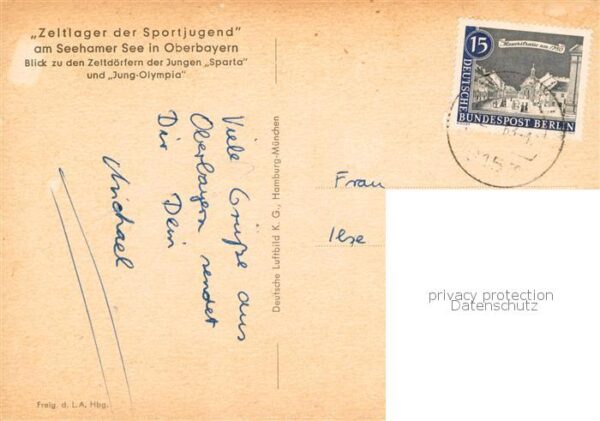 „Zeltlager der Sportjugend"
am Seehamer See in Oberbayern
Blick zu den Zeltdörfern der Jungen „Sparta"
und „Jung-Olympia"
Viele Grüße aus
Oberbayern sendet
Dir Dein
Michael
Freig. d. L.A. Hbg.
Deutsche Luftbild K. G., Hamburg-München
15
DEUTSCHE
BUNDESPOST BERLIN
Frau
Ilse
privacy protection
Datenschutz